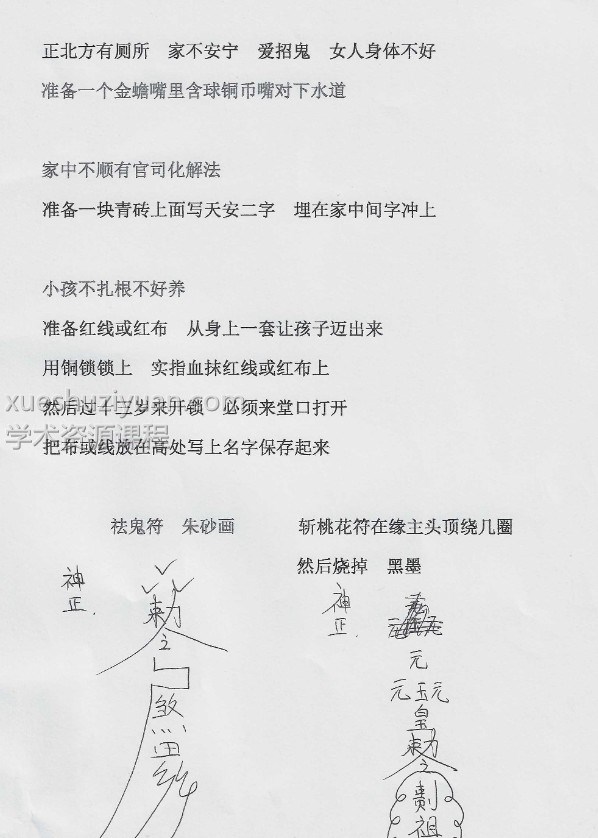 正北方有厕所 家不安宁 爱招鬼 女人身体不好
准备一个金蟾嘴里含球铜币嘴对下水道
家中不顺有官司化解法
准备一块青砖上面写天安二字 埋在家中间字冲上
小孩不扎根不好养
准备红线或红布 从身上一套让孩子迈出来
用铜锁锁上 实指血抹红线或红布上
xueshuziyuan.com
然后过十三岁来开锁 必须来堂口打开
学术资源课程
把布或线放在高处写上名字保存起来
祛鬼符 朱砂画
斩桃花符在缘主头顶绕几圈
然后烧掉 黑墨
神
正.
敕
之
煞
神
正.
元
元玉元
皇
敕
之
祖